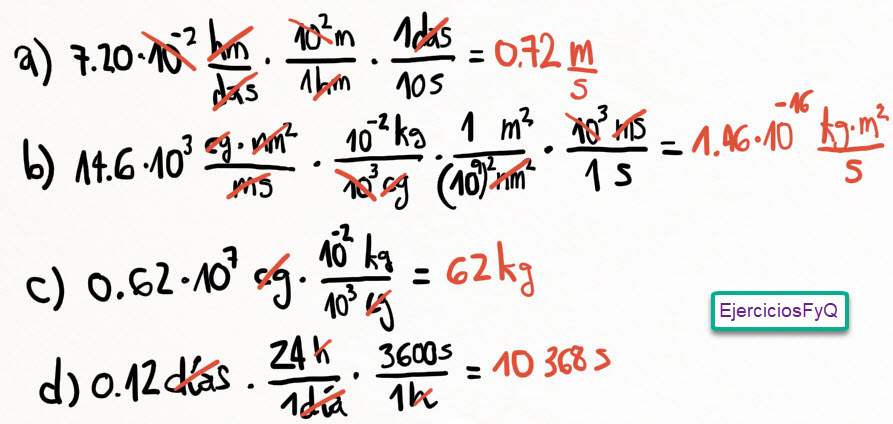 a) 7.20·10⁻² hm/das · 10² m/1hm · 1das/10s = 0.72 m/s
b) 14.6·10³ cg·nm²/ms · 10⁻² kg/10³ cg · 1 m²/(10⁹)² nm² · 10³ ms/1 s = 1.46·10⁻¹⁶ kg·m²/s
c) 0.62·10⁷ cg · 10⁻² kg/10³ cg = 62 kg
EjerciciosFyQ
d) 0.12 días · 24 h/1día · 3600 s/1h = 10 368 s